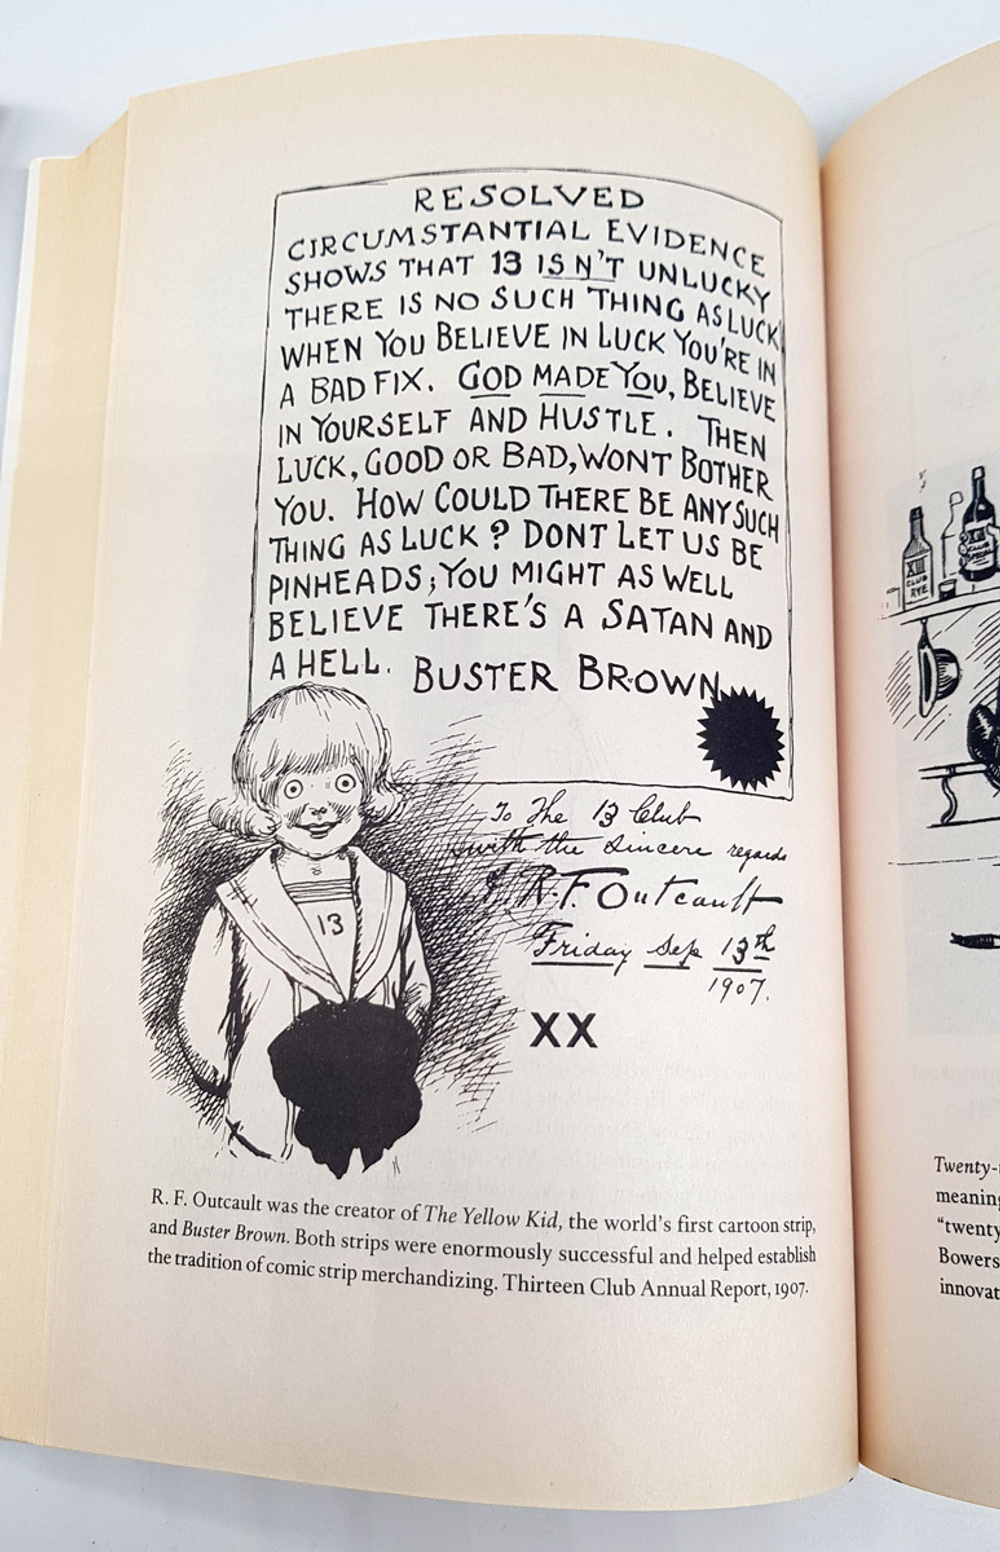 RESOLVED
CIRCUMSTANTIAL EVIDENCE
SHOWS THAT 13 ISN'T UNLUCKY
THERE IS NO SUCH THING AS LUCK
WHEN YOU BELIEVE IN LUCK YOU'RE IN
A BAD FIX. GOD MADE YOU, BELIEVE
IN YOURSELF AND HUSTLE. THEN
LUCK, GOOD OR BAD, WONT BOTHER
YOU. HOW COULD THERE BE ANY SUCH
THING AS LUCK? DONT LET US BE
PINHEADS; YOU MIGHT AS WELL
BELIEVE THERE'S A SATAN AND
A HELL. BUSTER BROWN
To The 13 Club
with the sincere regards
R.F. Outcault
Friday Sep 13th
1907.
13
XX
R. F. Outcault was the creator of The Yellow Kid, the world's first cartoon strip,
and Buster Brown. Both strips were enormously successful and helped establish
the tradition of comic strip merchandizing. Thirteen Club Annual Report, 1907.
XIII
CLUB
RYE
XIII
CLUB
SPECIAL
Twenty-
meaning
"twenty
Bowers
innovat